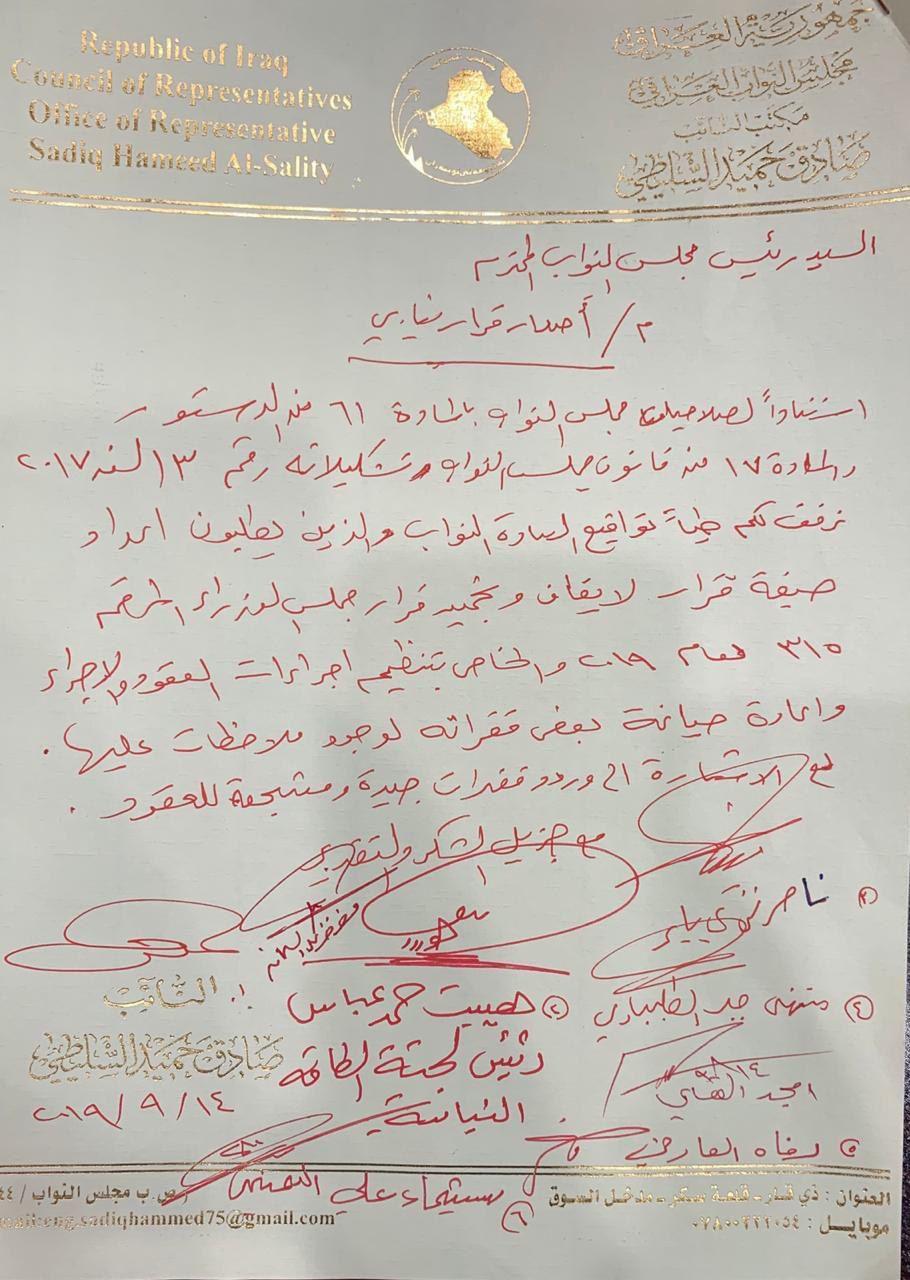 Republic of Iraq
Council of Representatives
Office of Representative
Sadiq Hameed Al-Sality
جمهورية العراق
مجلس النواب العراقي
مكتب النائب
صادق حميد السليطي
السيد رئيس مجلس النواب المحترم
م/ أصدار قرار نيابي
استناداً لصلاحيات مجلس النواب بالمادة ٦١ من الدستور
والمادة ١٧ من قانون مجلس النواب وتشكيلاته رقم ١٣ لسنة ٢٠١٧
نرفق لكم طياً تواقيع السادة النواب والذين يطلبون اعداد
صيغة قرار لايقاف وتجميد قرار مجلس الوزراء المرقم
٣١٥ لعام ٢٠١٩ والخاص بتنظيم اجراءات العقود والاجراء
واعادة صياغة بعض فقراته لوجود ملاحظات عليها.
مع الاشارة الى ورود فقرات جيدة ومشجعة للعقود.
مع جزيل الشكر والتقدير
٣ ناصر تركي
النائب
صادق حميد السليطي
٢٠١٩/٩/١٤
١.
٢ هيبت حمد عباس
رئيس لجنة الطاقة
النيابية
٤ منتهى
امجد
٥ رفاه العارضي
٦ علي
العنوان : ذي قار - قلعة سكر - مدخل السوق
موبايل :
ص.ب مجلس النواب /
mail:eng.sadiqhammed75@gmail.com